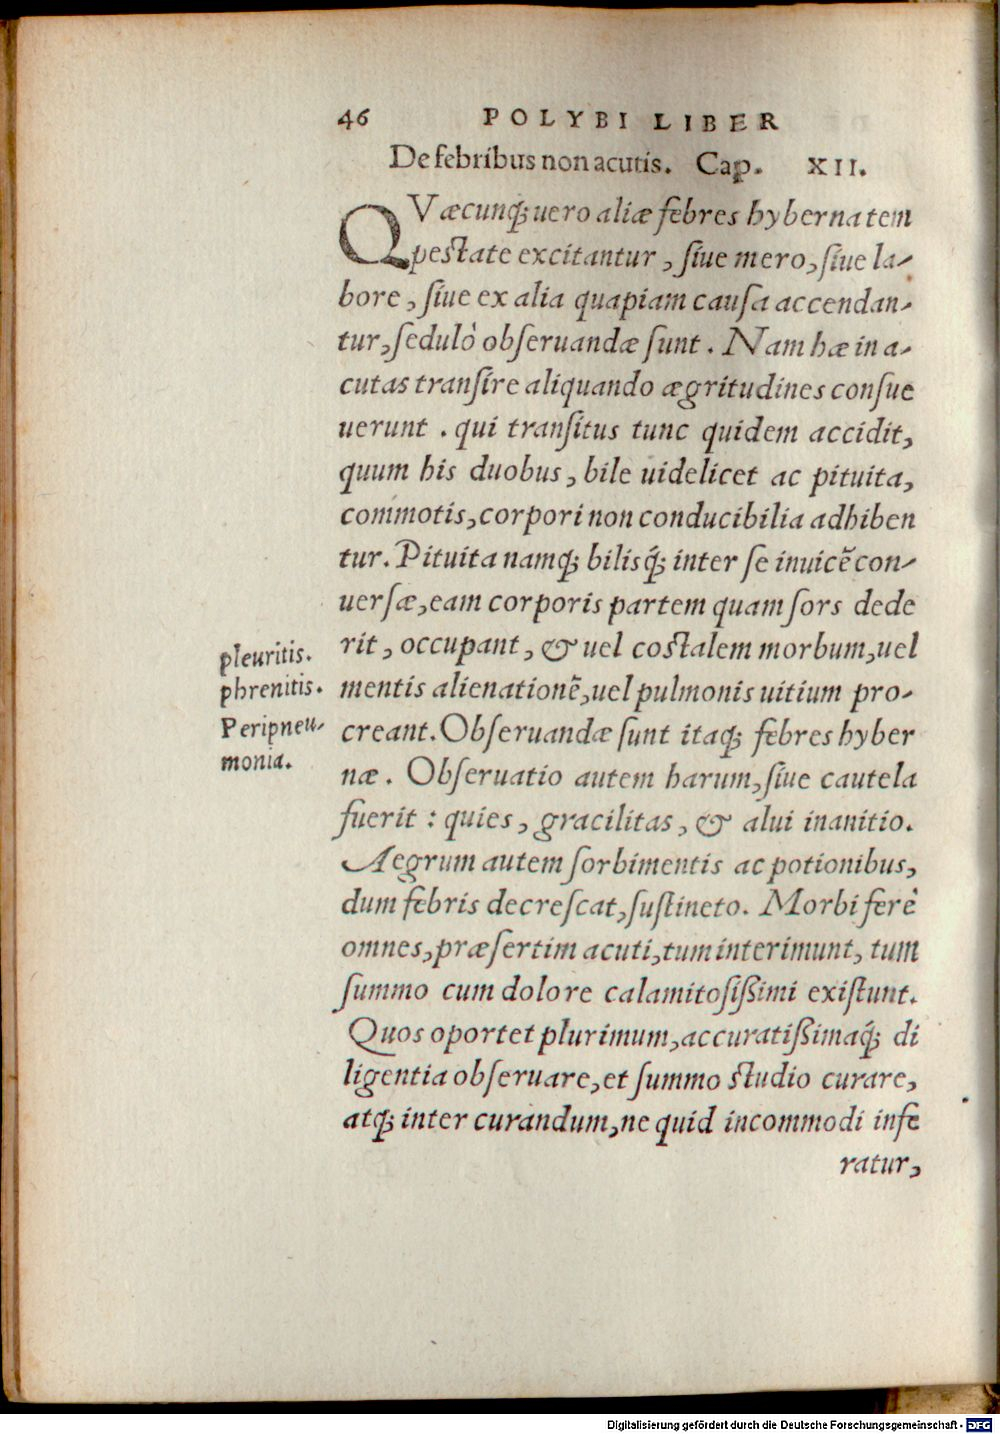 46 POLYBI LIBER
De febribus non acutis. Cap. XII.
QVæcunq; uero aliæ febres hyberna tem
pestate excitantur, siue mero, siue la-
bore, siue ex alia quapiam causa accendan-
tur, sedulò obseruandæ sunt. Nam hæ in a-
cutas transire aliquando ægritudines consue
uerunt. qui transitus tunc quidem accidit,
quum his duobus, bile uidelicet ac pituita,
commotis, corpori non conducibilia adhiben
tur. Pituita namq; bilisq́; inter se inuicẽ con-
uersæ, eam corporis partem quam sors dede
rit, occupant, & uel costalem morbum, uel
mentis alienationẽ, uel pulmonis uitium pro-
creant. Obseruandæ sunt itaq; febres hyber
næ. Obseruatio autem harum, siue cautela
fuerit: quies, gracilitas, & alui inanitio.
Aegrum autem sorbimentis ac potionibus,
dum febris decrescat, sustineto. Morbi ferè
omnes, præsertim acuti, tum interimunt, tum
summo cum dolore calamitosißimi existunt.
Quos oportet plurimum, accuratißimaq́; di
ligentia obseruare, et summo studio curare,
atq; inter curandum, ne quid incommodi infe
ratur,
pleuritis.
phrenitis.
Peripneu-
monia.
Digitalisierung gefördert durch die Deutsche Forschungsgemeinschaft - DFG